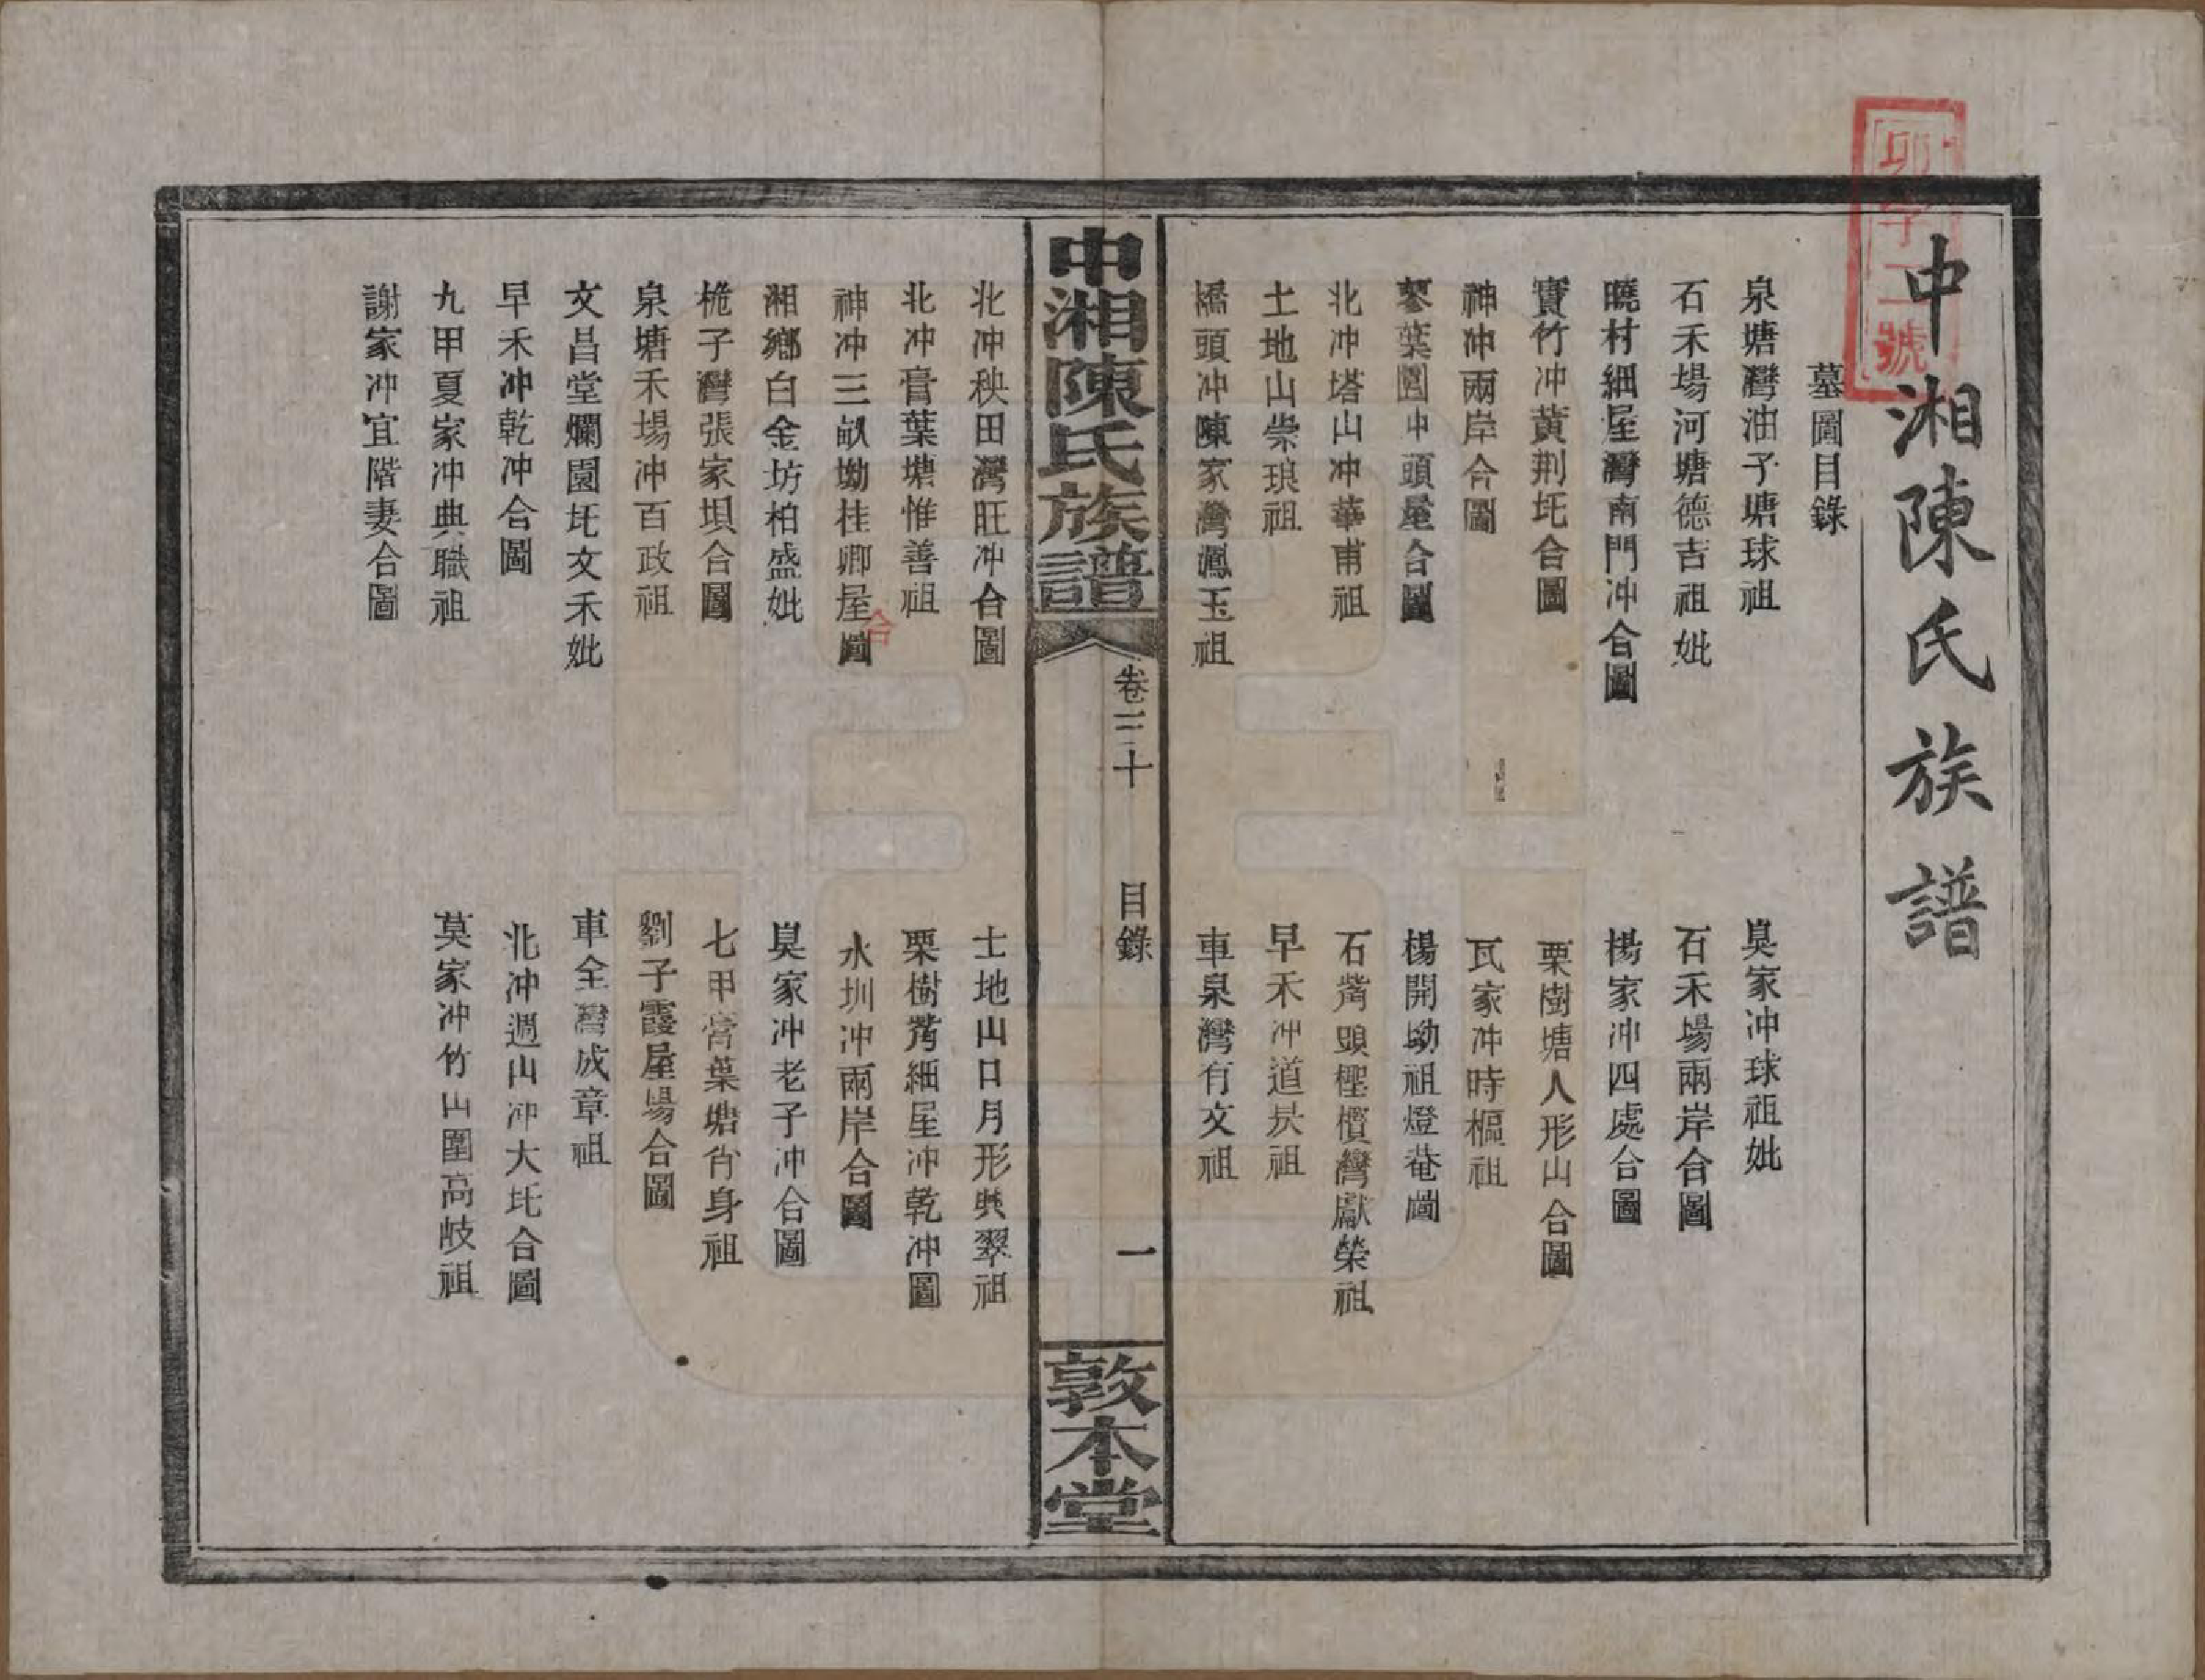 卯字二號
中湘陳氏族譜
墓圖目錄
泉塘灣油子塘球祖
吳家冲球祖妣
石禾場河塘德吉祖妣
石禾場兩岸合圖
曉村細屋灣南門冲合圖
楊家冲四處合圖
寶竹冲黃荆圫合圖
栗樹塘人形山合圖
神冲兩岸合圖
瓦家冲時樞祖
蓼葉園中頭屋合圖
楊開坳祖燈菴圖
北冲塔山冲華甫祖
石觜頭檉櫎灣獻榮祖
土地山崇琅祖
早禾冲道昃祖
橋頭冲陳家灣鳳玉祖
車泉灣有文祖
中湘陳氏族譜
卷三十
目錄
一
敦本堂
北冲秧田灣旺冲合圖
土地山日月形興翠祖
北冲膏葉塘惟善祖
栗樹觜細屋冲乾冲圖
神冲三畝坳桂卿屋合圖
水圳冲兩岸合圖
湘鄉白金坊柏盛妣
吳家冲老子冲合圖
桅子灣張家垻合圖
七甲膏葉塘省身祖
泉塘禾場冲百政祖
劉子霞屋場合圖
文昌堂爛園圫文禾妣
車全灣成章祖
早禾冲乾冲合圖
北冲週山冲大圫合圖
九甲夏家冲典職祖
莫家冲竹山圍高岐祖
謝家冲宜階妻合圖